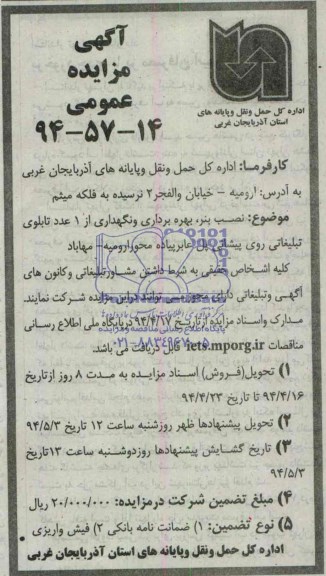 اداره کل حمل ونقل وپایانه های
استان آذربایجان غربی
آگهی
مزایده
عمومی
۹۴-۵۷-۱۴
کارفرما: اداره کل حمل ونقل وپایانه های آذربایجان غربی
به آدرس: ارومیه - خیابان والفجر۲ نرسیده به فلکه میثم
موضوع: نصب بنر، بهره برداری ونگهداری از ۱ عدد تابلوی
تبلیغاتی روی پیشانی پل عابرپیاده محورارومیه- مهاباد
کلیه اشخاص حقیقی به شرط داشتن مشاورتبلیغاتی وکانون های
آگهی وتبلیغاتی دارای مجوز می توانند دراین مزایده شرکت نمایند.
مدارک واسناد مزایده از تاریخ ۹۴/۴/۱۷ درپایگاه ملی اطلاع رسانی
مناقصات iets.mporg.ir قابل دریافت می باشد.
۱) تحویل(فروش) اسناد مزایده به مدت ۸ روز ازتاریخ
۹۴/۴/۱۶ تا تاریخ ۹۴/۴/۲۳
۲) تحویل پیشنهادها ظهر روزشنبه ساعت ۱۲ تاریخ ۹۴/۵/۳
۳) تاریخ گشایش پیشنهادها روزدوشنبه ساعت ۱۲تاریخ
۹۴/۵/۳
۴) مبلغ تضمین شرکت درمزایده: ۲۰/۰۰۰/۰۰۰ ریال
۵) نوع تضمین: ۱) ضمانت نامه بانکی ۲) فیش واریزی
اداره کل حمل ونقل وپایانه های استان آذربایجان غربی
۰۲۱-۸۸۳۴۹۶۷۰-۵